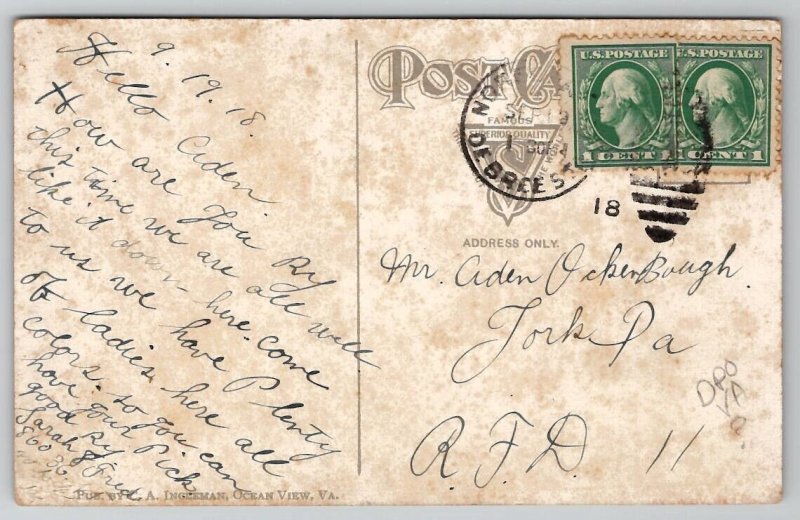 9. 19. 18.
Hello Aden.
How are You By
this time we are all well
like it down here. come
to us we have Plenty
of ladies here all
colors. so You can
have Your Pick
good By
Sarah & Fred
POST CA
FAMOUS
SUPERIOR QUALITY
ADDRESS ONLY.
U.S. POSTAGE
1 CENT 1
U.S. POSTAGE
CENT 1
DEBREE
18
Mr. Aden OckenBough.
York Pa
R. F. D. 11
DPO
VA
PUB. BY A. INGLEMAN, OCEAN VIEW, VA.